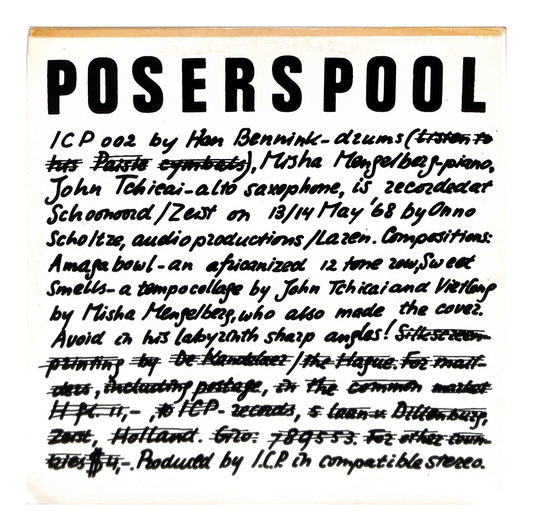 POSERSPOOL
ICP 002 by Han Bennink-drums (Listen to
his Paiste cymbals), Misha Mengelberg-piano,
John Tchicai-alto saxophone, is recorded at
Schoonoord/Zeist on 13/14 May '68 by Onno
Scholtze, audioproductions/Laren. Compositions:
Amagabowl-an africanized 12 tone row, Sweet
Smells-a tempo collage by John Tchicai and Vierlong
by Misha Mengelberg, who also made the cover.
Avoid in his labyrinth sharp angles! Silkscreen
printing by De Kandelaer/the Hague. For mail-
ders, including postage, in the common market
H fl. 11,-, to ICP-records, 5 laan v. Dillenburg,
Zeist, Holland. Giro: 789553. For other coun-
tries $4,-. Produced by I.C.P. in compatible stereo.